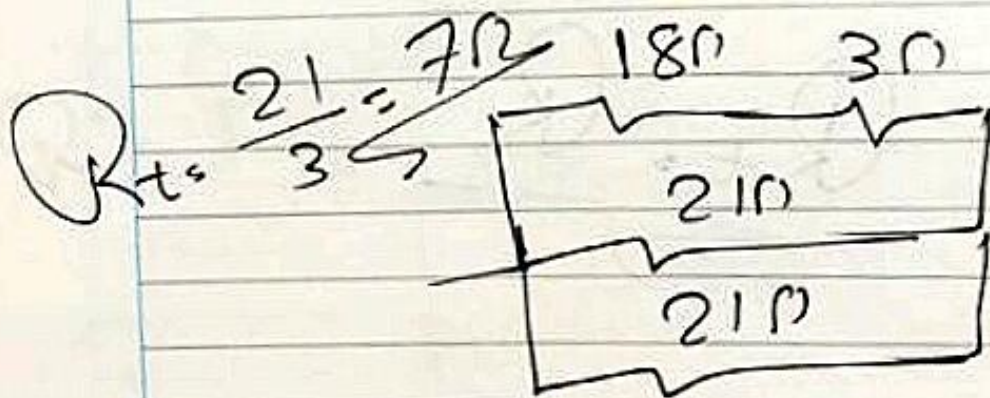 Rt = 21/3 = 7Ω
18Ω 3Ω
21Ω
21Ω